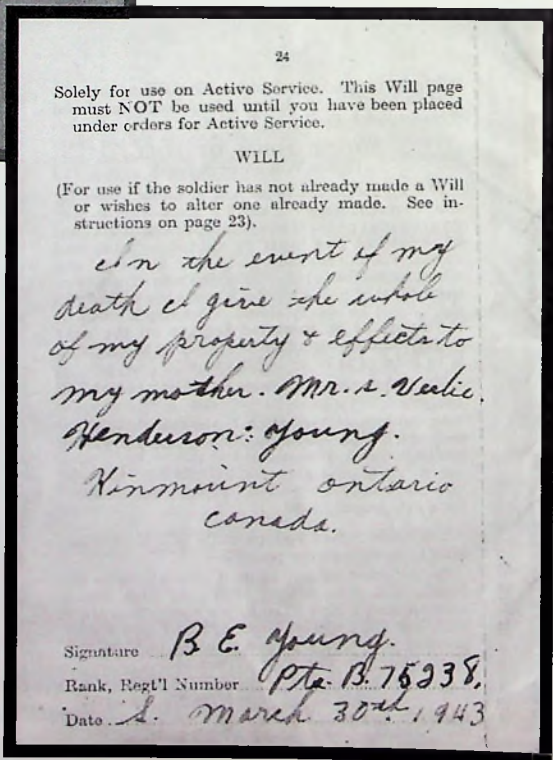 24
Solely for use on Active Service. This Will page
must NOT be used until you have been placed
under orders for Active Service.
WILL
(For use if the soldier has not already made a Will
or wishes to alter one already made. See in-
structions on page 23).
In the event of my
death I give the whole
of my property & effects to
my mother. Mr.s. Verlie.
Henderson: Young.
Kinmount ontario
canada.
Signature B. E. Young.
Rank, Regt'l Number Pte. B. 75238.
Date S. March 30th, 1943